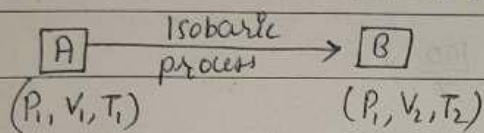 Isobaric
A B
process
(P₁, V₁, T₁) (P₁, V₂, T₂)